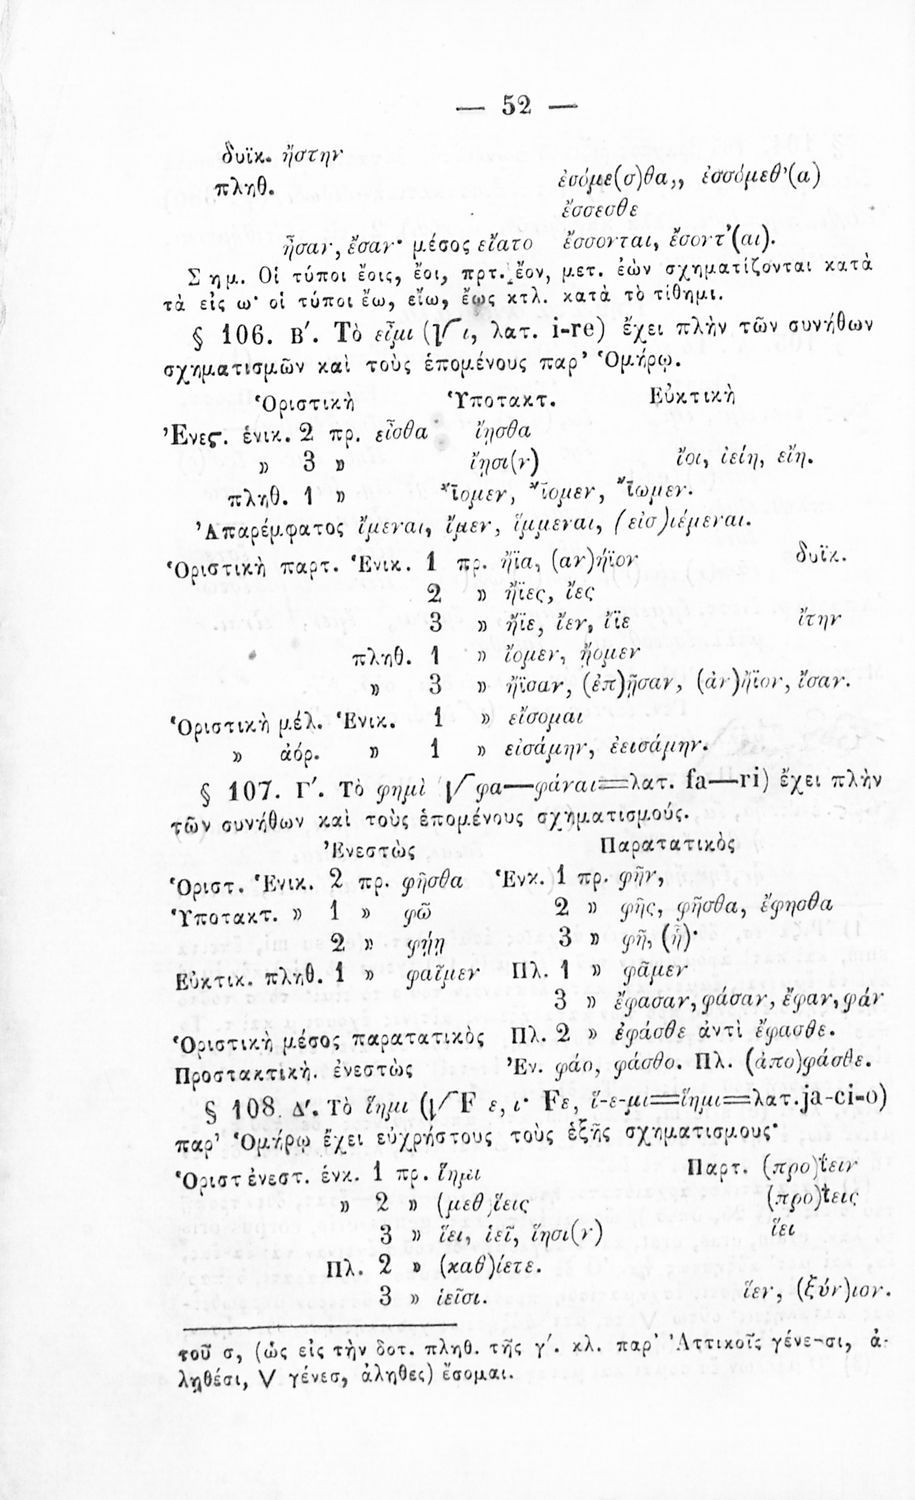 — 52 —
δυϊκ. ἤστην
πληθ. ἐσόμε(σ)θα,, ἐσσόμεθ'(α)
ἔσσεσθε
ἦσαν, ἔσαν· μέσος εἵατο ἔσσονται, ἔσοντ'(αι).
Σημ. Οἱ τύποι ἔοις, ἔοι, πρτ. ἔον, μετ. ἐὼν σχηματίζονται κατὰ
τὰ εἰς ω· οἱ τύποι ἔω, εἴω, ἔῃς κτλ. κατὰ τὸ τίθημι.
§ 106. Β'. Τὸ εἶμι (√ ι, λατ. i-re) ἔχει πλὴν τῶν συνήθων
σχηματισμῶν καὶ τοὺς ἑπομένους παρ' Ὁμήρῳ.
Ὁριστικὴ Ὑποτακτ. Εὐκτικὴ
Ἐνεστ. ἑνικ. 2 πρ. εἶσθα ἴῃσθα
» 3 » ἴῃσι(ν) ἴοι, ἰείη, εἴη.
πληθ. 1 » Ἴομεν, Ἴομεν, Ἴωμεν.
Ἀπαρέμφατος ἴμεναι, ἴμεν, ἴμμεναι, (εἰσ)ιέμεναι.
Ὁριστικὴ παρτ. Ἑνικ. 1 πρ. ἤϊα, (αν)ήϊον δυϊκ.
2 » ἤϊες, ἴες
3 » ἤϊε, ἴεν, ἴϊε ἴτην
πληθ. 1 » ἴομεν, ᾔομεν
» 3 » ἤϊσαν, (ἐπ)ῇσαν, (ἀν)ήϊον, ἴσαν.
Ὁριστικὴ μέλ. Ἑνικ. 1 » εἴσομαι
» ἀόρ. » 1 » εἰσάμην, ἐεισάμην.
§ 107. Γ'. Τὸ φημὶ √ φα—φάναι=λατ. fa—ri) ἔχει πλὴν
τῶν συνήθων καὶ τοὺς ἑπομένους σχηματισμούς.
Ἐνεστὼς Παρατατικὸς
Ὁριστ. Ἑνικ. 2 πρ. φῆσθα Ἑνκ. 1 πρ. φῆν,
Ὑποτακτ. » 1 » φῶ 2 » φῆς, φῆσθα, ἔφησθα
2 » φήῃ 3 » φῆ, (ἦ)·
Εὐκτικ. πληθ. 1 » φαῖμεν Πλ. 1 » φᾶμεν
3 » ἔφασαν, φάσαν, ἔφαν, φάν
Ὁριστικὴ μέσος παρατατικὸς Πλ. 2 » ἐφάσθε ἀντὶ ἔφασθε.
Προστακτικὴ. ἐνεστὼς Ἑν. φάο, φάσθο. Πλ. (ἀπο)φάσθε.
§ 108. Δ'. Τὸ ἵημι (√ F ε, ι· Fε, ἵ-ε-μι=ἵημι=λατ. ja-ci-o)
παρ' Ὁμήρῳ ἔχει εὐχρήστους τοὺς ἑξῆς σχηματισμους·
Ὁριστ ἐνεστ. ἑνκ. 1 πρ. ἵημι Παρτ. (προ)ΐειν
» 2 » (μεθ)ίεις (προ)ΐεις
3 » ἵει, ἱεῖ, ἵησι(ν) ἵει
Πλ. 2 » (καθ)ίετε.
3 » ἱεῖσι. ἵεν, (ξύν)ιον.
τοῦ σ, (ὡς εἰς τὴν δοτ. πληθ. τῆς γ'. κλ. παρ' Ἀττικοῖς γένε-σι, ἀ-
ληθέσι, V γένεσ, ἀληθες) ἔσομαι.